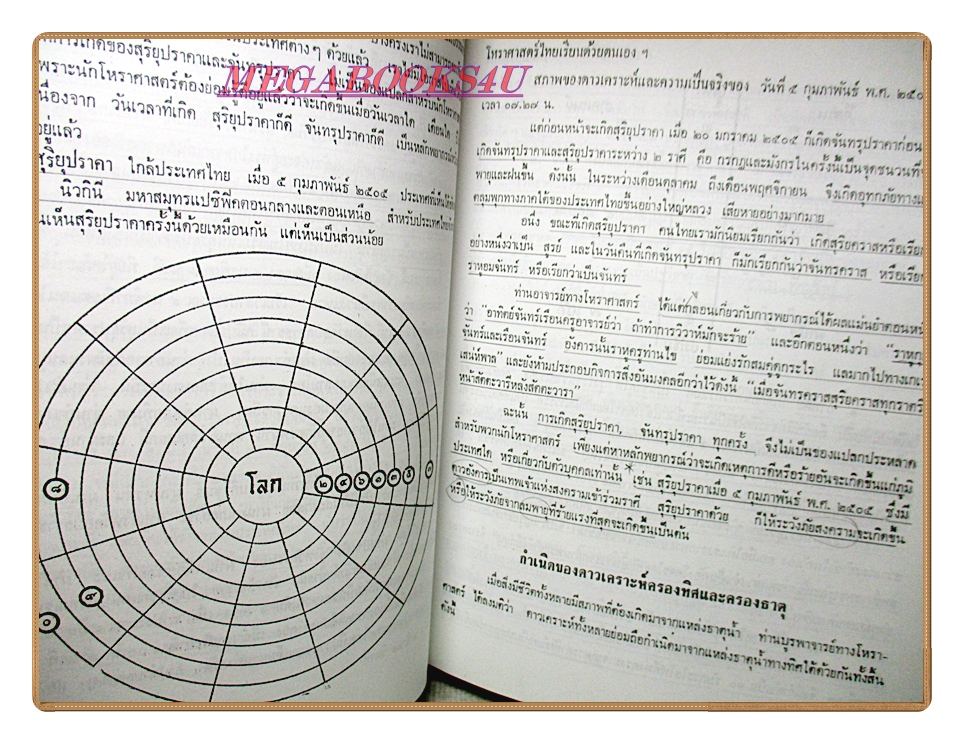 ประเทศต่างๆ ด้วยแล้ว
การเกิดของสุริยุปราคาและจันทรุปราคา
MEGABOOKS4U
เพราะนักโหราศาสตร์ต้องย่อมรู้ดีอยู่แล้วว่าจะเกิดขึ้นเมื่อวันเวลาใด เดือนใด
เนื่องจาก วันเวลาที่เกิด สุริยุปราคาก็ดี จันทรุปราคาก็ดี เป็นหลักพยากรณ์
อยู่แล้ว
สุริยุปราคา ใกล้ประเทศไทย เมื่อ ๕ กุมภาพันธ์ ๒๕๐๕ ประเทศที่เห็นได้
นิวกินี มหาสมุทรแปซิฟิคตอนกลางและตอนเหนือ สำหรับประเทศไทย
นเห็นสุริยุปราคาครั้งนี้ด้วยเหมือนกัน แต่เห็นเป็นส่วนน้อย
โลก
๒ ๔ ๖ ๑ ๓ ๗ ๕
๘
๙
๐
โหราศาสตร์ไทยเรียนด้วยตนเอง ฯ
สภาพของดาวเคราะห์และความเป็นจริงของ วันที่ ๕ กุมภาพันธ์ พ.ศ. ๒๕๐
เวลา ๐๗.๒๗ น.
แต่ก่อนหน้าจะเกิดสุริยุปราคา เมื่อ ๒๐ มกราคม ๒๕๐๕ ก็เกิดจันทรุปราคาก่อน
เกิดจันทรุปราคาและสุริยุปราคาระหว่าง ๒ ราศี คือ กรกฎและมังกรในครั้งนี้เป็นจุดชนวนที่
พายุและฝนขึ้น ดังนั้น ในระหว่างเดือนตุลาคม ถึงเดือนพฤศจิกายน จึงเกิดอุทกภัยทาง
คลุมพทางภาคใต้ของประเทศไทยขึ้นอย่างใหญ่หลวง เสียหายอย่างมากมาย
อนึ่ง ขณะที่เกิดสุริยุปราคา คนไทยเรามักนิยมเรียกกันว่า เกิดสุริยคราสหรือเรีย
อย่างหนึ่งว่าเป็น สูรย์ และในวันคืนที่เกิดจันทรุปราคา ก็มักเรียกกันว่าจันทรคราส หรือเรีย
ราหูอมจันทร์ หรือเรียกว่าเป็นจันทร์
ท่านอาจารย์ทางโหราศาสตร์ ได้แต่งกลอนเกี่ยวกับการพยากรณ์ได้ผลแม่นยำตอนห
ว่า “อาทิตย์จันทร์เรียนครูอาจารย์ว่า ถ้าทำการวิวาห์มักจะร้าย” และอีกตอนหนึ่งว่า “ราหูก
จันทร์และเรียนจันทร์ อังคารนั้นราหูครูท่านไข ย่อมแย่งรักสมคู่ดูกระไร แลมากไปทางเก
เสน่ห์พาล” และยังห้ามประกอบกิจการสิ่งอันมงคลอีกว่าไว้ดังนี้ “เมื่อจันทรคราสสุริยคราสทุกราตรี
หน้าสัตตะวารีหลังสัตตะวารา”
ฉะนั้น การเกิดสุริยุปราคา, จันทรุปราคา ทุกครั้ง จึงไม่เป็นของแปลกประหลาด
สำหรับพวกนักโหราศาสตร์ เพียงแต่หาหลักพยากรณ์ว่าจะเกิดเหตุการดีหรือร้ายอันจะเกิดขึ้นแก่ภูมิ
ประเทศใด หรือเกี่ยวกับตัวบุคคลเท่านั้น เช่น สุริยุปราคาเมื่อ ๕ กุมภาพันธ์ พ.ศ. ๒๕๐๕ ซึ่งมี
ดาวอังคารเป็นเทพเจ้าแห่งสงครามเข้าร่วมราศี สุริยุปราคาด้วย ก็ให้ระวังภัยสงครามจะเกิดขึ้น
หรือให้ระวังภัยจากลมพายุที่ร้ายแรงที่สุดจะเกิดขึ้นเป็นต้น
กำเนิดของดาวเคราะห์ครองทิศและครองธาตุ
เมื่อสิ่งมีชีวิตทั้งหลายมีสภาพที่ต้องเกิดมาจากแหล่งธาตุน้ำ ท่านบุรพาจารย์ทางโหรา-
ศาสตร์ ได้ลงมติว่า ดาวเคราะห์ทั้งหลายย่อมถือกำเนิดมาจากแหล่งธาตุน้ำทางทิศใต้ด้วยกันทั้งสิ้น
ดังนี้